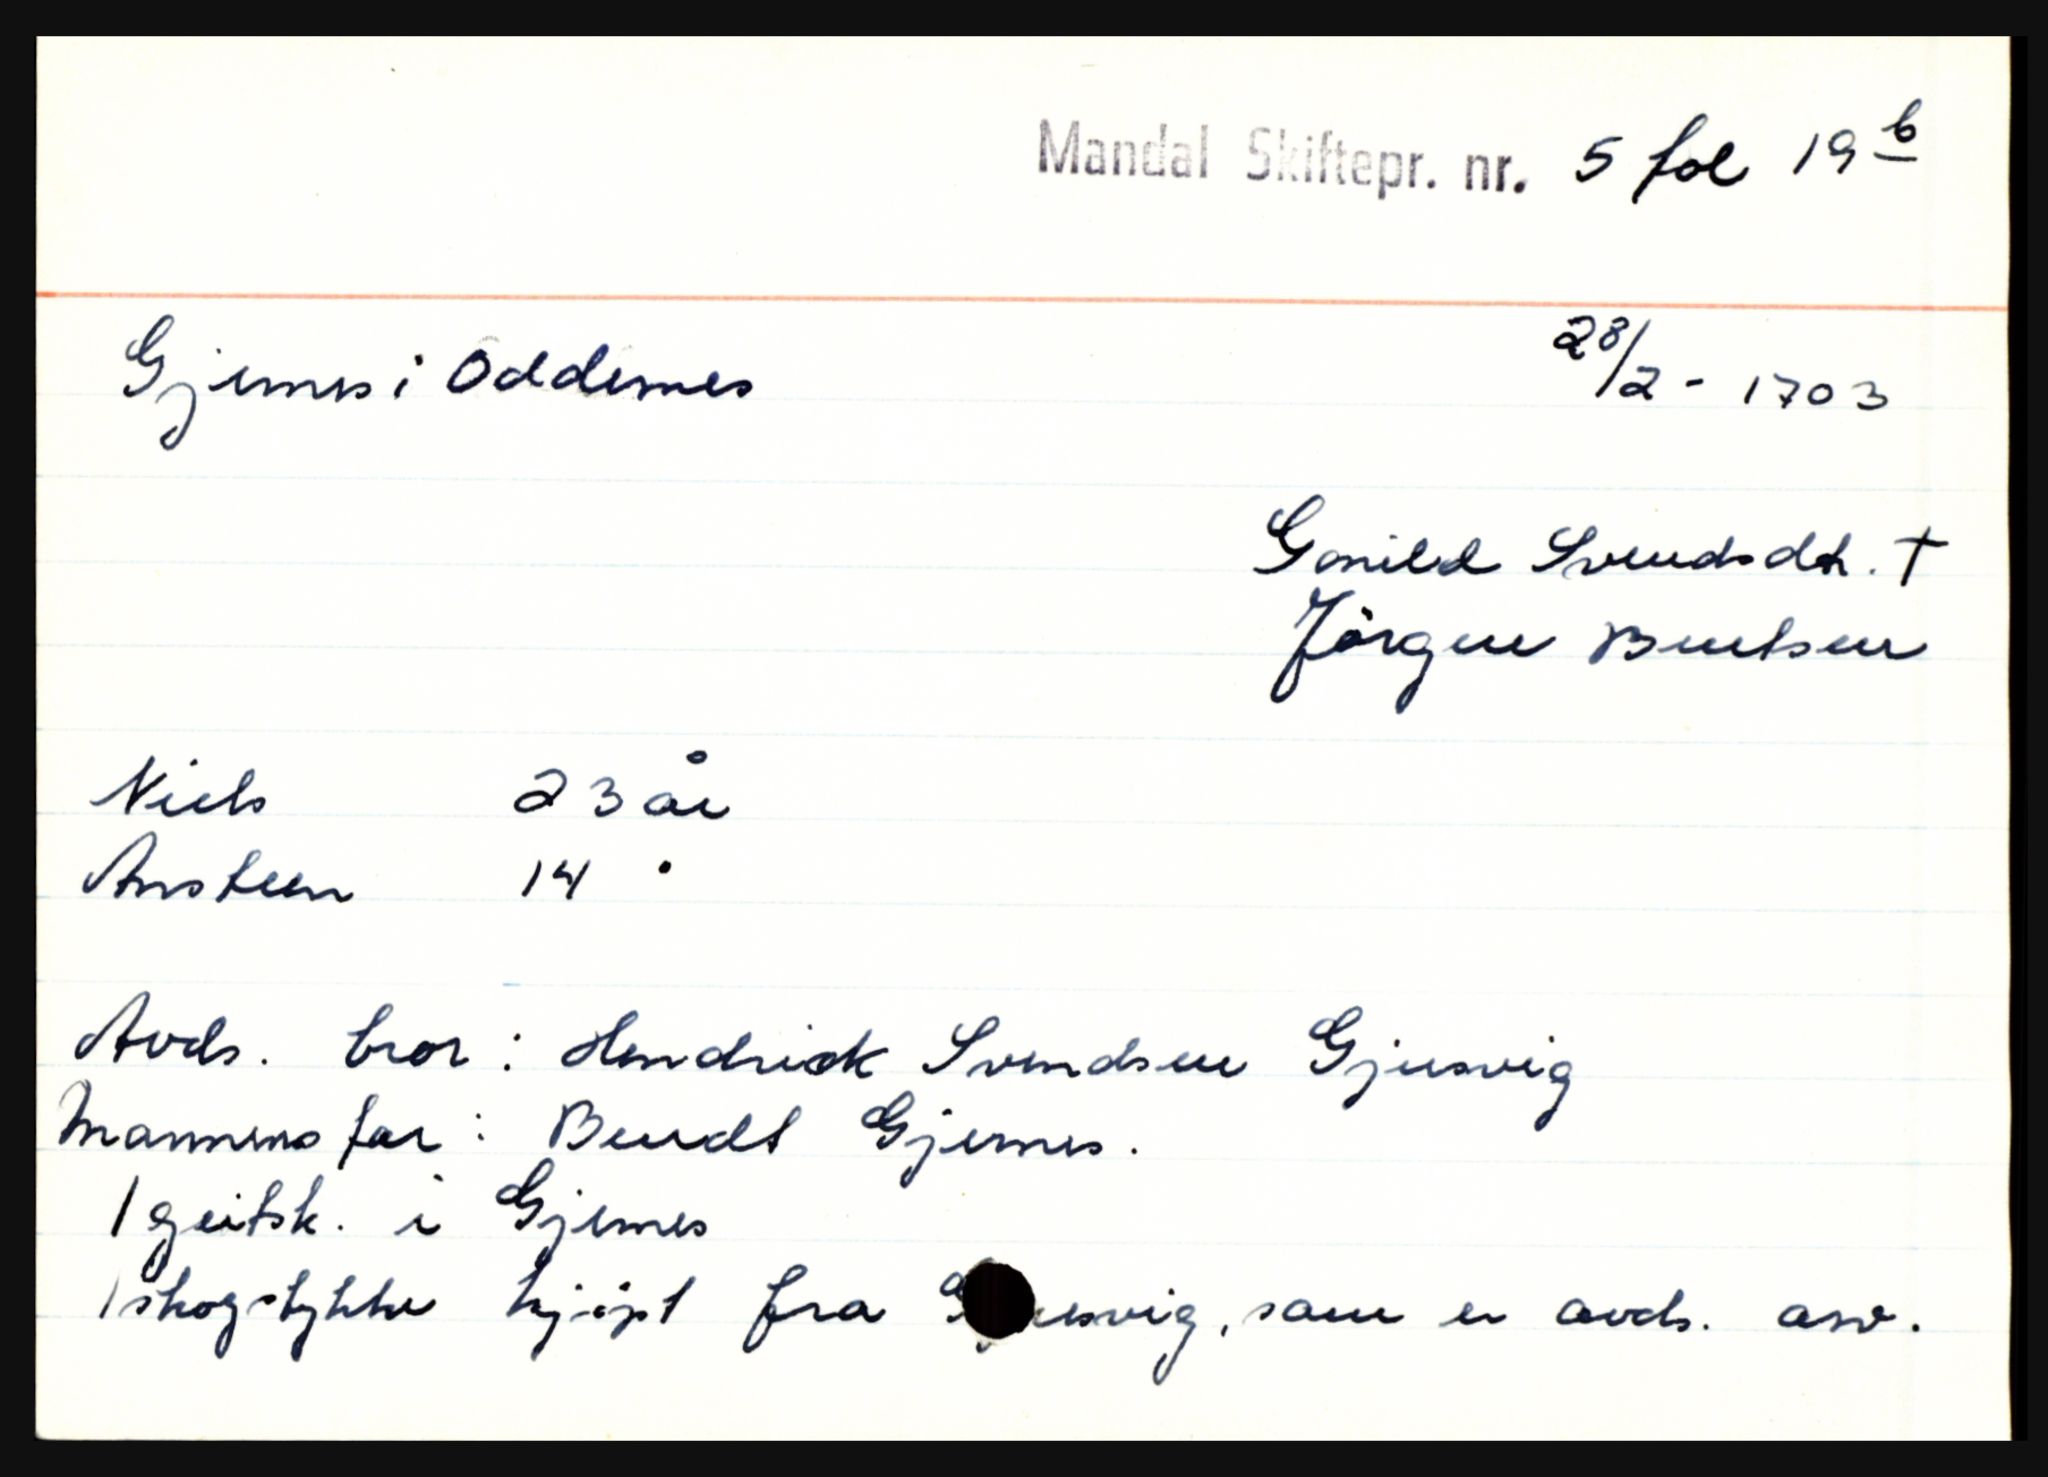 Mandal Skiftepr. nr. 5 fol 19 b
Gjernes i Oddernes 28/2 - 1703
Gonild Svendsdtr. †
Jörgen Bentsen
Niels 23 år
Ansteen 14 "
Avds. bror : Hendrick Svendsen Gjusvig
Mannens far : Bendt Gjernes.
1 geitsk. i Gjernes
1 skogstykke kjöpt fra usvig, som er avds. arv.